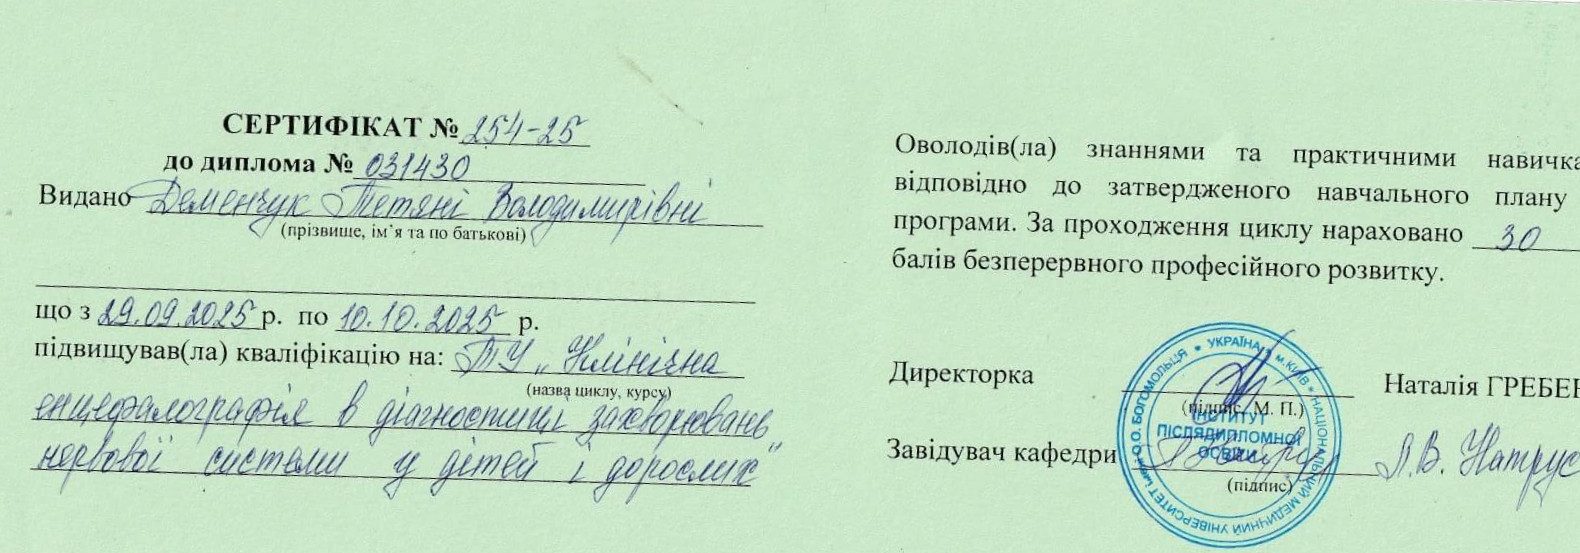 СЕРТИФІКАТ № 254-25
до диплома № 031430
Видано Деменчук Тетяні Володимирівні
(прізвище, ім’я та по батькові)
що з 29.09.2025 р. по 10.10.2025 р.
підвищував(ла) кваліфікацію на: ТУ „Клінічна
(назва циклу, курсу)
енцефалографія в діагностиці захворювань
нервової системи у дітей і дорослих”
Оволодів(ла) знаннями та практичними навичка
відповідно до затвердженого навчального плану
програми. За проходження циклу нараховано 30
балів безперервного професійного розвитку.
Директорка Наталія ГРЕБЕН
(підпис, М. П.)
Завідувач кафедри Л.В. Натрус
(підпис)
УКРАЇНА * м.КИЇВ * НАЦІОНАЛЬНИЙ МЕДИЧНИЙ УНІВЕРСИТЕТ імені О.О. БОГОМОЛЬЦЯ *
ІНСТИТУТ
ПІСЛЯДИПЛОМНОЇ
ОСВІТИ